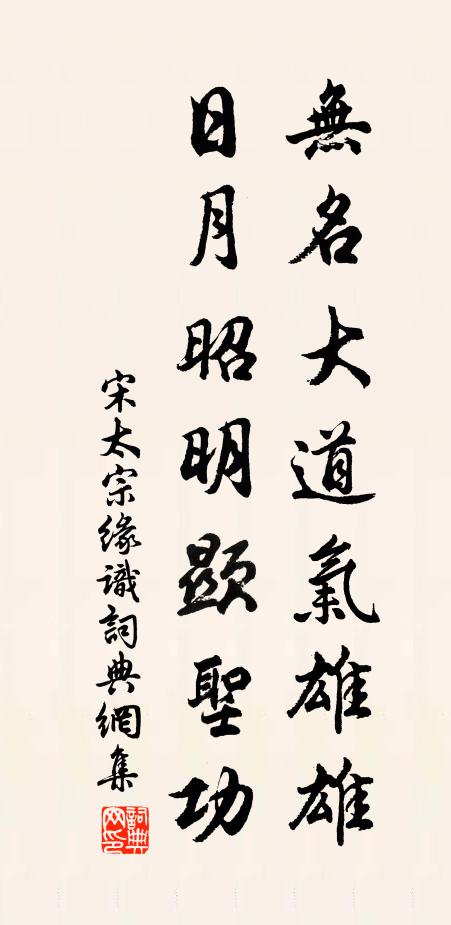 無名大道氣雄雄
日月昭明顯聖功
宋太宗緣識詞典網集
詞典網印